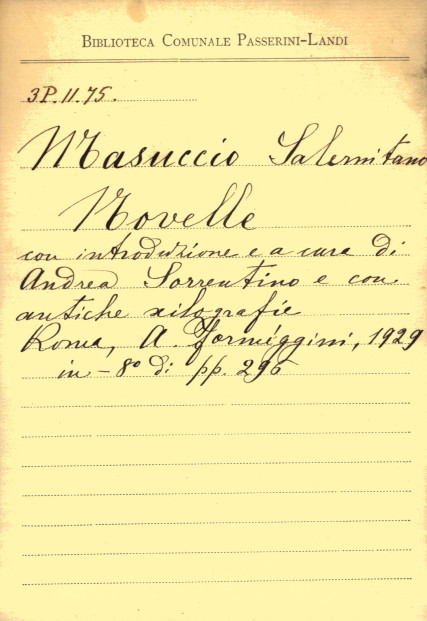 BIBLIOTECA COMUNALE PASSERINI-LANDI
3P.11.75.
Masuccio Salernitano
Novelle
con introduzione e a cura di
Andrea Sorrentino e con
antiche xilografie
Roma, A. Formiggini, 1929
in - 8º di pp. 296